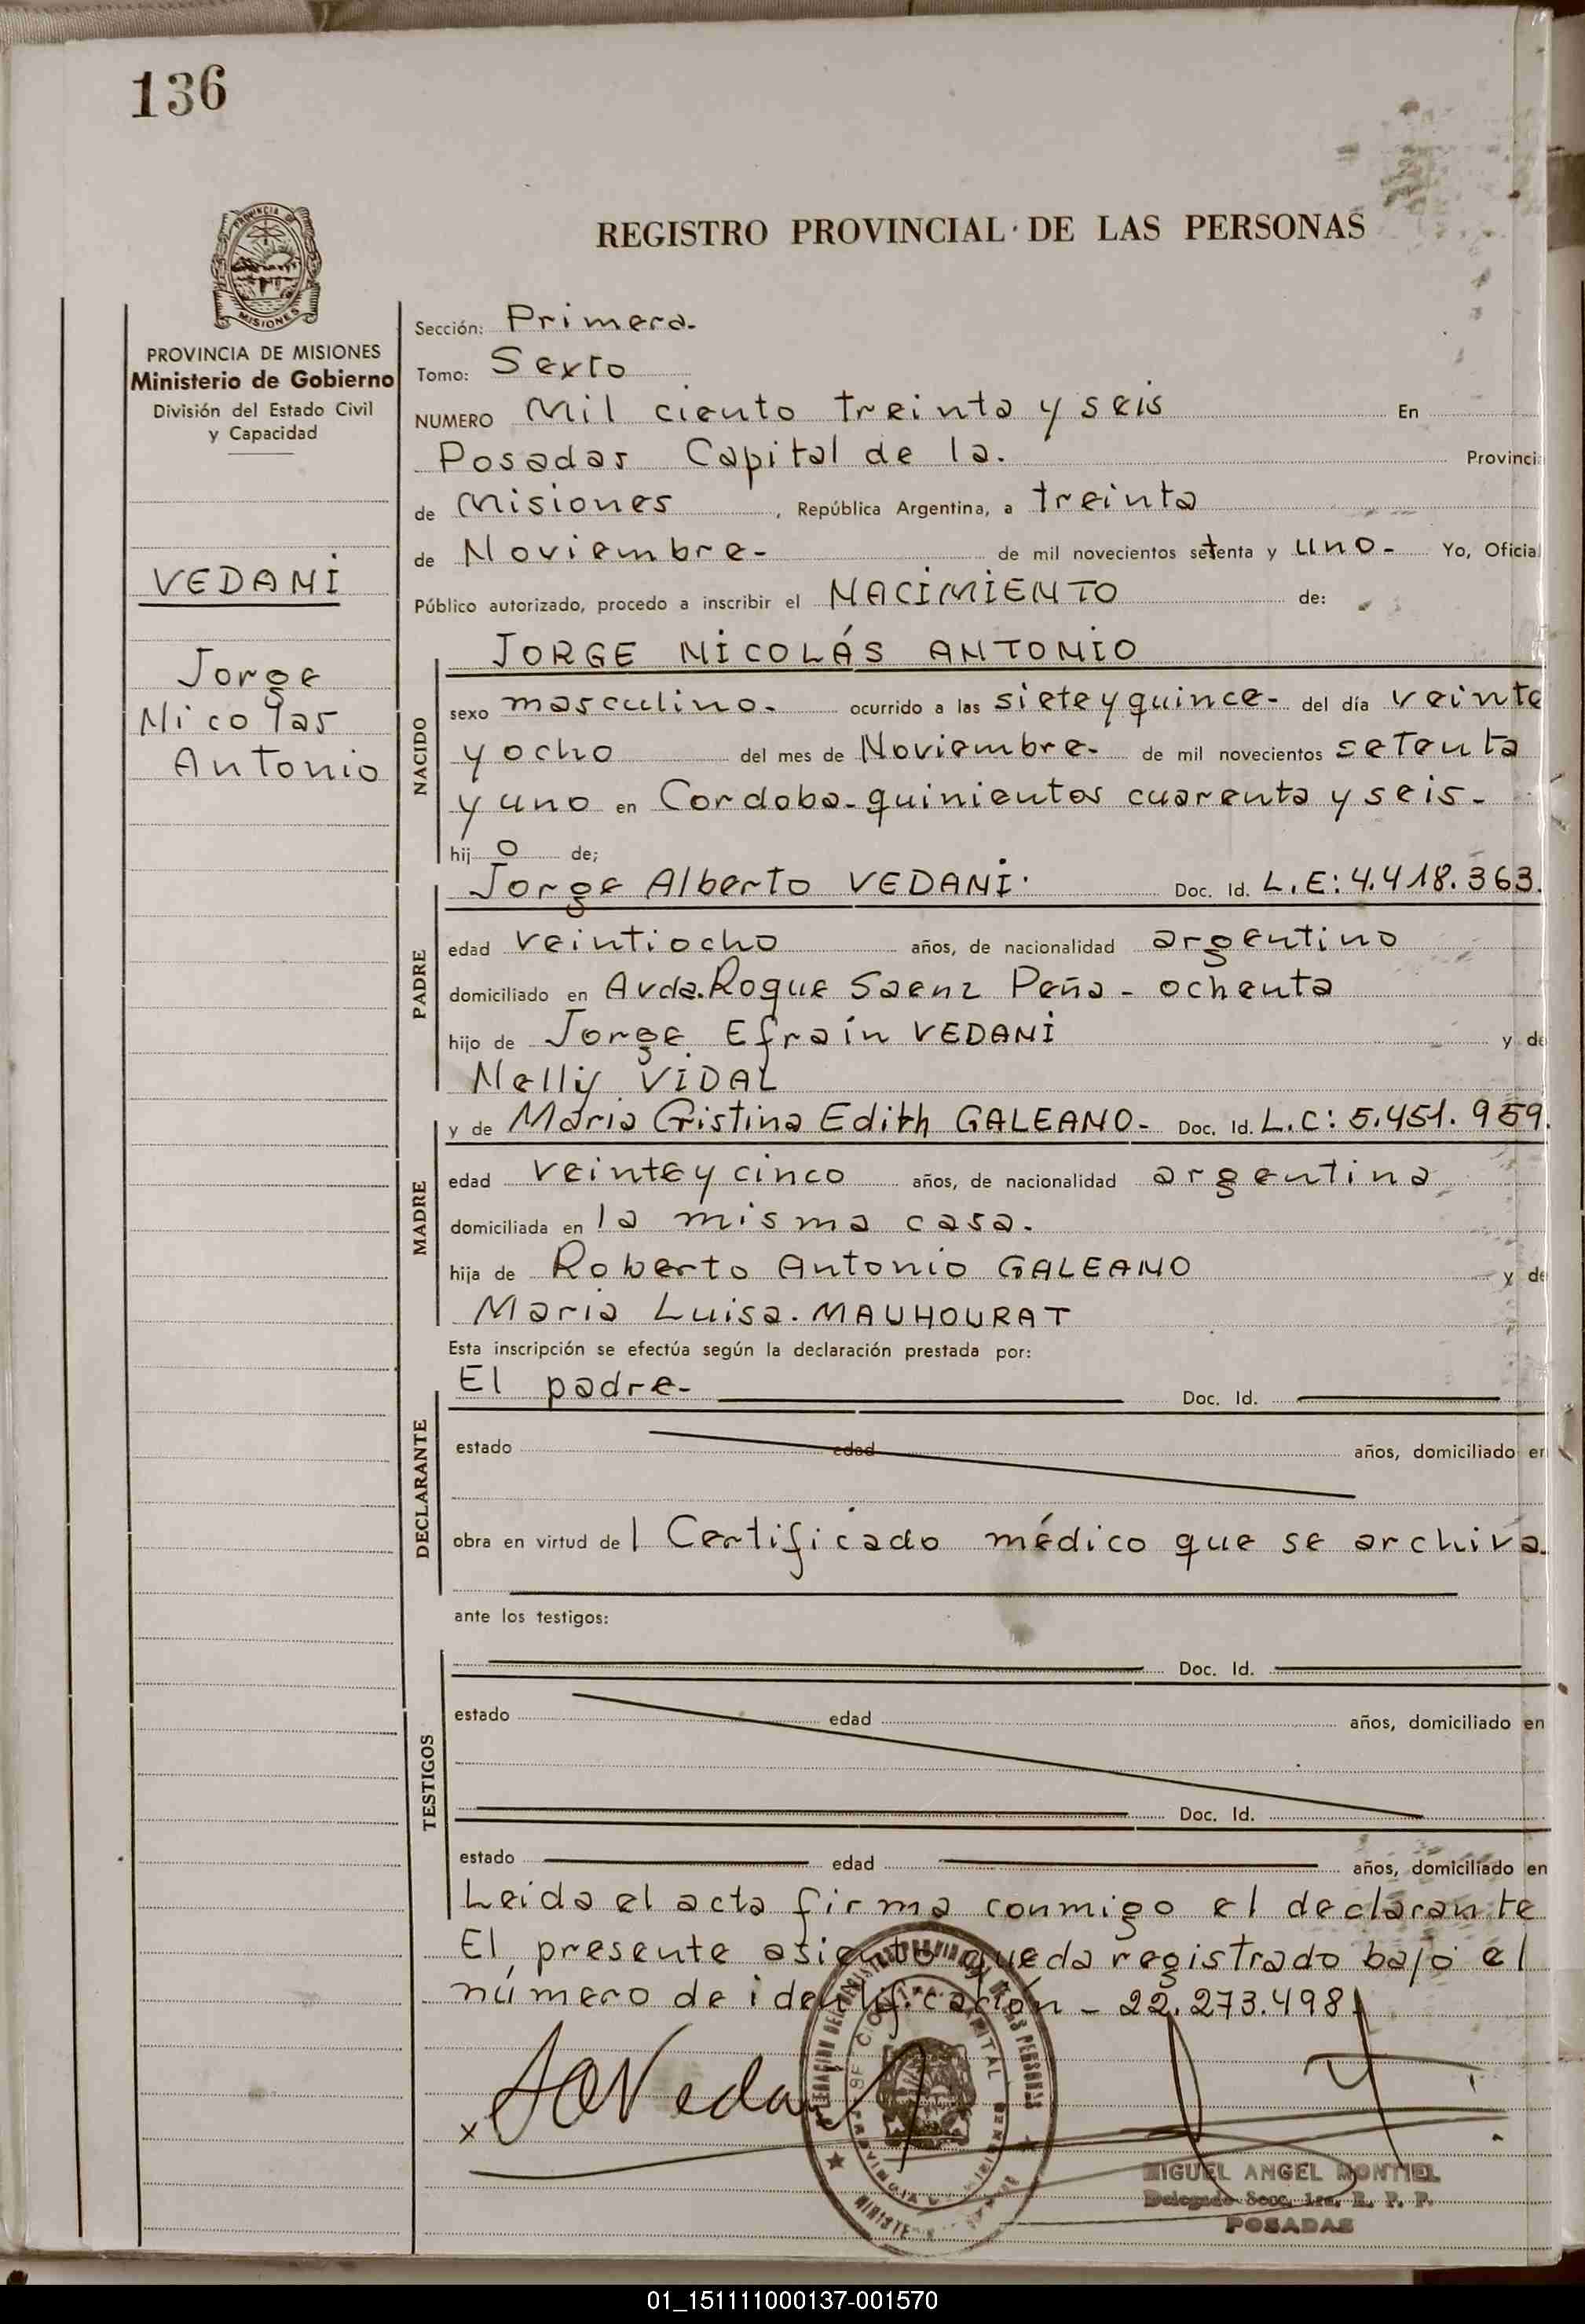 136
PROVINCIA DE
MISIONES
PROVINCIA DE MISIONES
Ministerio de Gobierno
División del Estado Civil
y Capacidad
VEDANI
Jorge
Nicolas
Antonio
REGISTRO PROVINCIAL DE LAS PERSONAS
Sección: Primera.
Tomo: Sexto
NUMERO Mil ciento treinta y seis En
Posadas Capital de la. Provinci
de Misiones, República Argentina, a treinta
de Noviembre- de mil novecientos setenta y uno- Yo, Oficial
Público autorizado, procedo a inscribir el NACIMIENTO de:
JORGE NICOLÁS ANTONIO
NACIDO
sexo masculino. ocurrido a las siete y quince- del día veinte
y ocho del mes de Noviembre- de mil novecientos setenta
y uno en Cordoba-quinientos cuarenta y seis-
hij o de;
Jorge Alberto VEDANI. Doc. Id. L.E: 4.418.363.
PADRE
edad veintiocho años, de nacionalidad argentino
domiciliado en Avda.Roque Saenz Peña - ochenta
hijo de Jorge Efraín VEDANI y de
Nelly VIDAL
y de Maria Cristina Edith GALEANO- Doc. Id. L.C: 5.451.959.
MADRE
edad veinte y cinco años, de nacionalidad argentina
domiciliada en la misma casa.
hija de Roberto Antonio GALEANO y de
Maria Luisa. MAUHOURAT
Esta inscripción se efectúa según la declaración prestada por:
El padre- Doc. Id.
DECLARANTE
estado edad años, domiciliado en
obra en virtud de l Certificado médico que se archiva.
ante los testigos:
Doc. Id.
TESTIGOS
estado edad años, domiciliado en
Doc. Id.
estado edad años, domiciliado en
Leida el acta firma conmigo el declarante
El presente asiento queda registrado bajo el
número de identificación - 22.273.498
x JAVedani
MIGUEL ANGEL MONTIEL
Delegado Secc. 1ra. R. P. P.
POSADAS
01_151111000137-001570